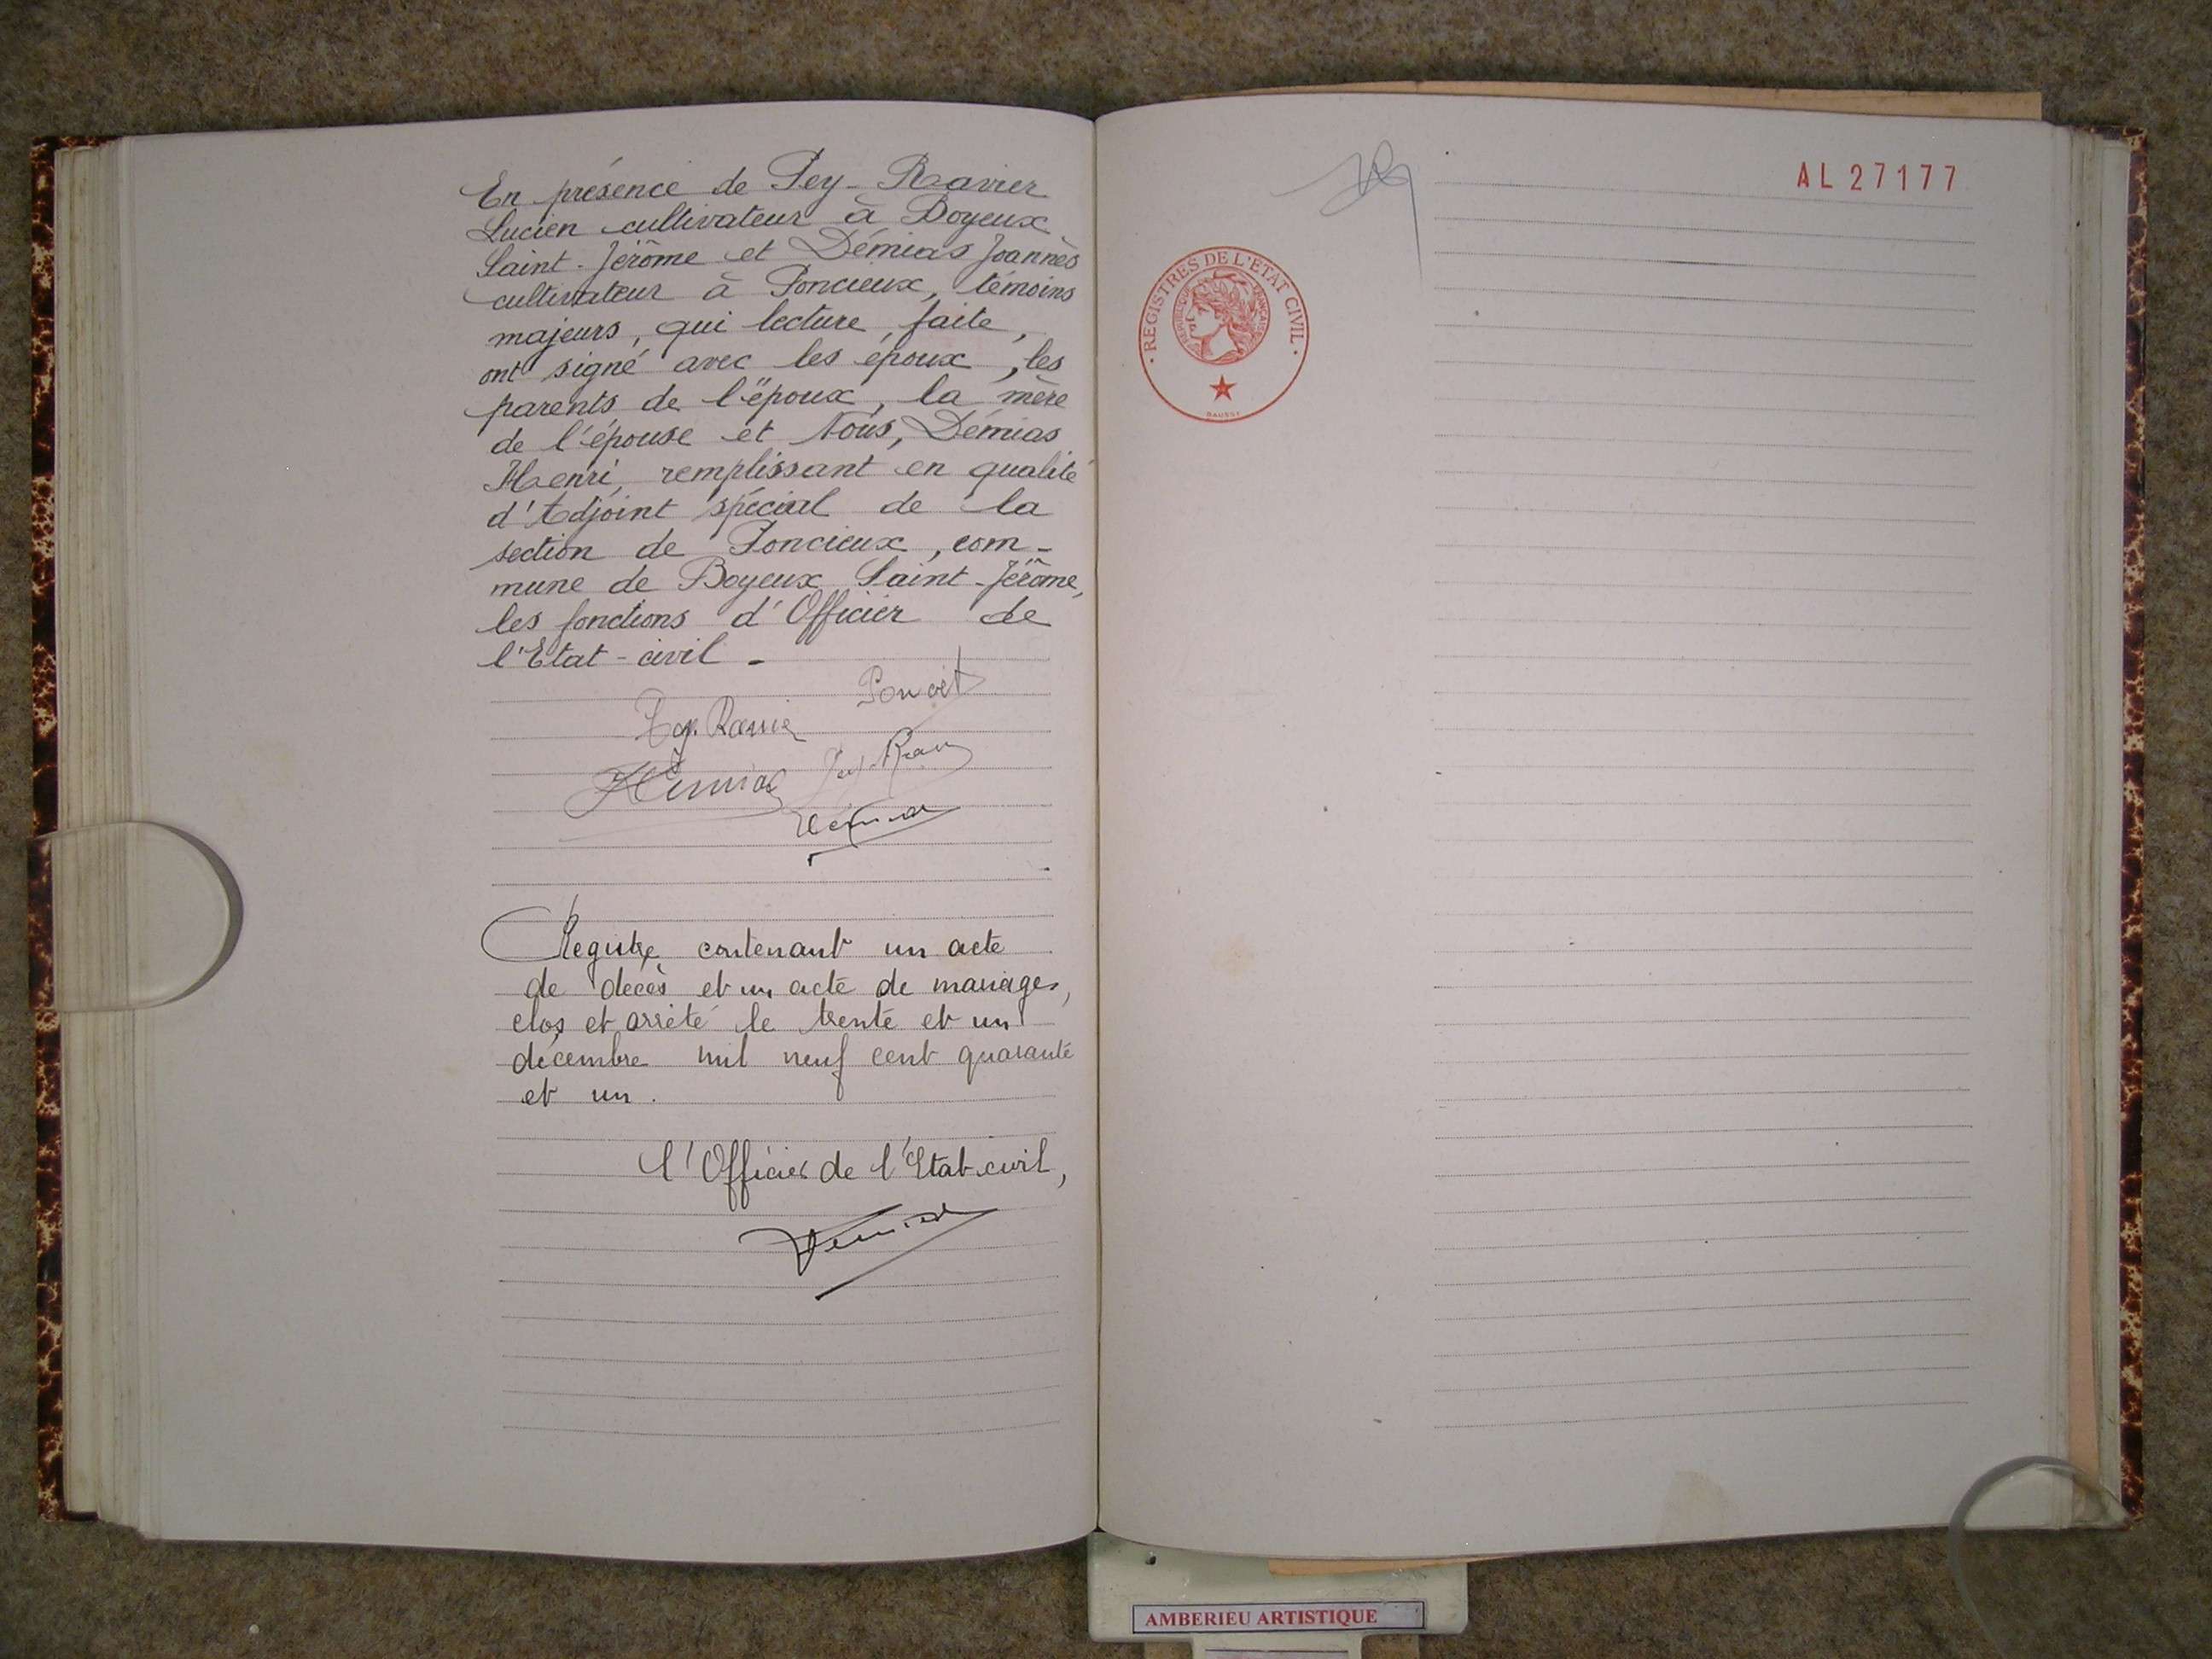 En présence de Pey-Ravier
Lucien cultivateur à Boyeux
Saint-Jérôme et Démias Joannès
cultivateur à Poncieux, témoins
majeurs, qui lecture faite,
ont signé avec les époux, les
parents de l'époux, la mère
de l'épouse et Nous, Démias
Henri, remplissant en qualité
d'Adjoint spécial de la
section de Poncieux, com-
mune de Boyeux Saint-Jérôme,
les fonctions d'Officier de
l'Etat-civil -
Registre contenant un acte
de décès et un acte de mariages,
clos et arrêté le trente et un
décembre mil neuf cent quarante
et un.
l'Officier de l'Etat-civil,
Démias
AL 27177
REGISTRES DE L'ETAT CIVIL
AMBERIEU ARTISTIQUE